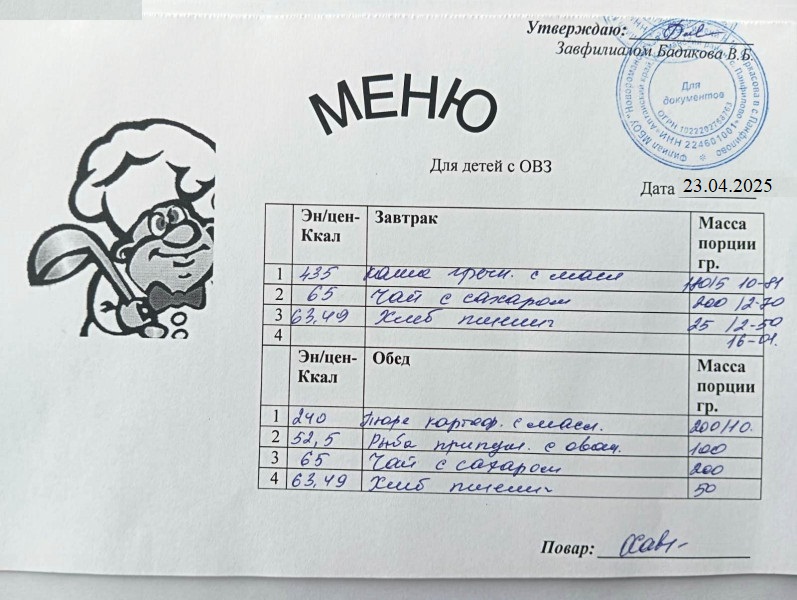 Утверждаю:
Завфилиалом Бадикова В.Б.
Для
документов
ОГРН 1022202764763
ИНН 224601001
МЕНЮ
Для детей с ОВЗ
Дата 23.04.2025
Эн/цен- Завтрак Масса
Ккал порции
гр.
1 435 каша гречн. с масл 10-81
2 65 Чай с сахаром 200 12-70
3 63,49 Хлеб пшенич 25 12-50
4 16-01.
Эн/цен- Обед Масса
Ккал порции
гр.
1 240 Пюре картоф. с масл. 200/10.
2 52,5 Рыба припущ. с овощ. 100
3 65 Чай с сахаром 200
4 63,49 Хлеб пшенич 50
Повар: